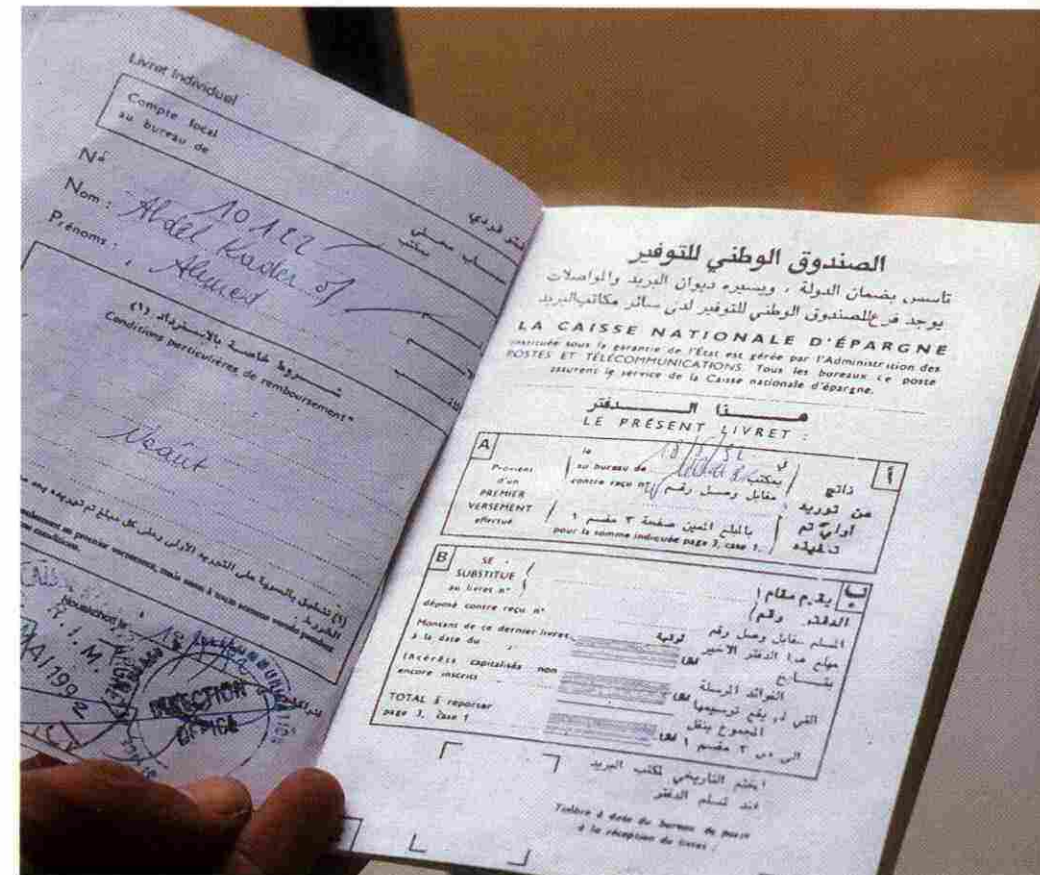 Livret Individuel
Compte local
au bureau de
Nº 10122
Nom : Abdel Kader Of
Prénoms : Ahmed
شــروط خاصــة بالاســترداد (١)
Conditions particulières de remboursement*
Néant
Nouakchott le
R. I. M.
MAI 199
DIRECTION
OFFICE
الصندوق الوطني للتوفير
تأسس بضمان الدولة ، ويسيره ديوان البريد والمواصلات
يوجد فرع للصندوق الوطني للتوفير لدى سائر مكاتب البريد
LA CAISSE NATIONALE D'ÉPARGNE
instituée sous la garantie de l'État est gérée par l'Administration des
POSTES ET TÉLÉCOMMUNICATIONS. Tous les bureaux de poste
assurent le service de la Caisse nationale d'épargne.
هــــذا الــــدفتر
LE PRÉSENT LIVRET :
A
أ
Provient
d'un
PREMIER
VERSEMENT
effectué
le
au bureau de
contre reçu nº
في
بمكتب
مقابل وصل رقم
ناتج
عن توريد
أولي تم
تنفيذه
بالمبلغ المبين صفحة ٣ مقسم ١
pour la somme indiquée page 3, case 1.
B
ب
SE
SUBSTITUE
au livret nº
déposé contre reçu nº
Montant de ce dernier livret
à la date du
Intérêts capitalisés non
encore inscrits
TOTAL à reporter
page 3, case 1
يقوم مقام
الدفتر رقم
المسلم مقابل وصل رقم
مبلغ هذا الدفتر الأخير
بتــاريخ
المجموع ينقل
الختم التاريخي لمكتب البريد
عند تسلم الدفتر
Timbre à date du bureau de poste
à la réception du livret :